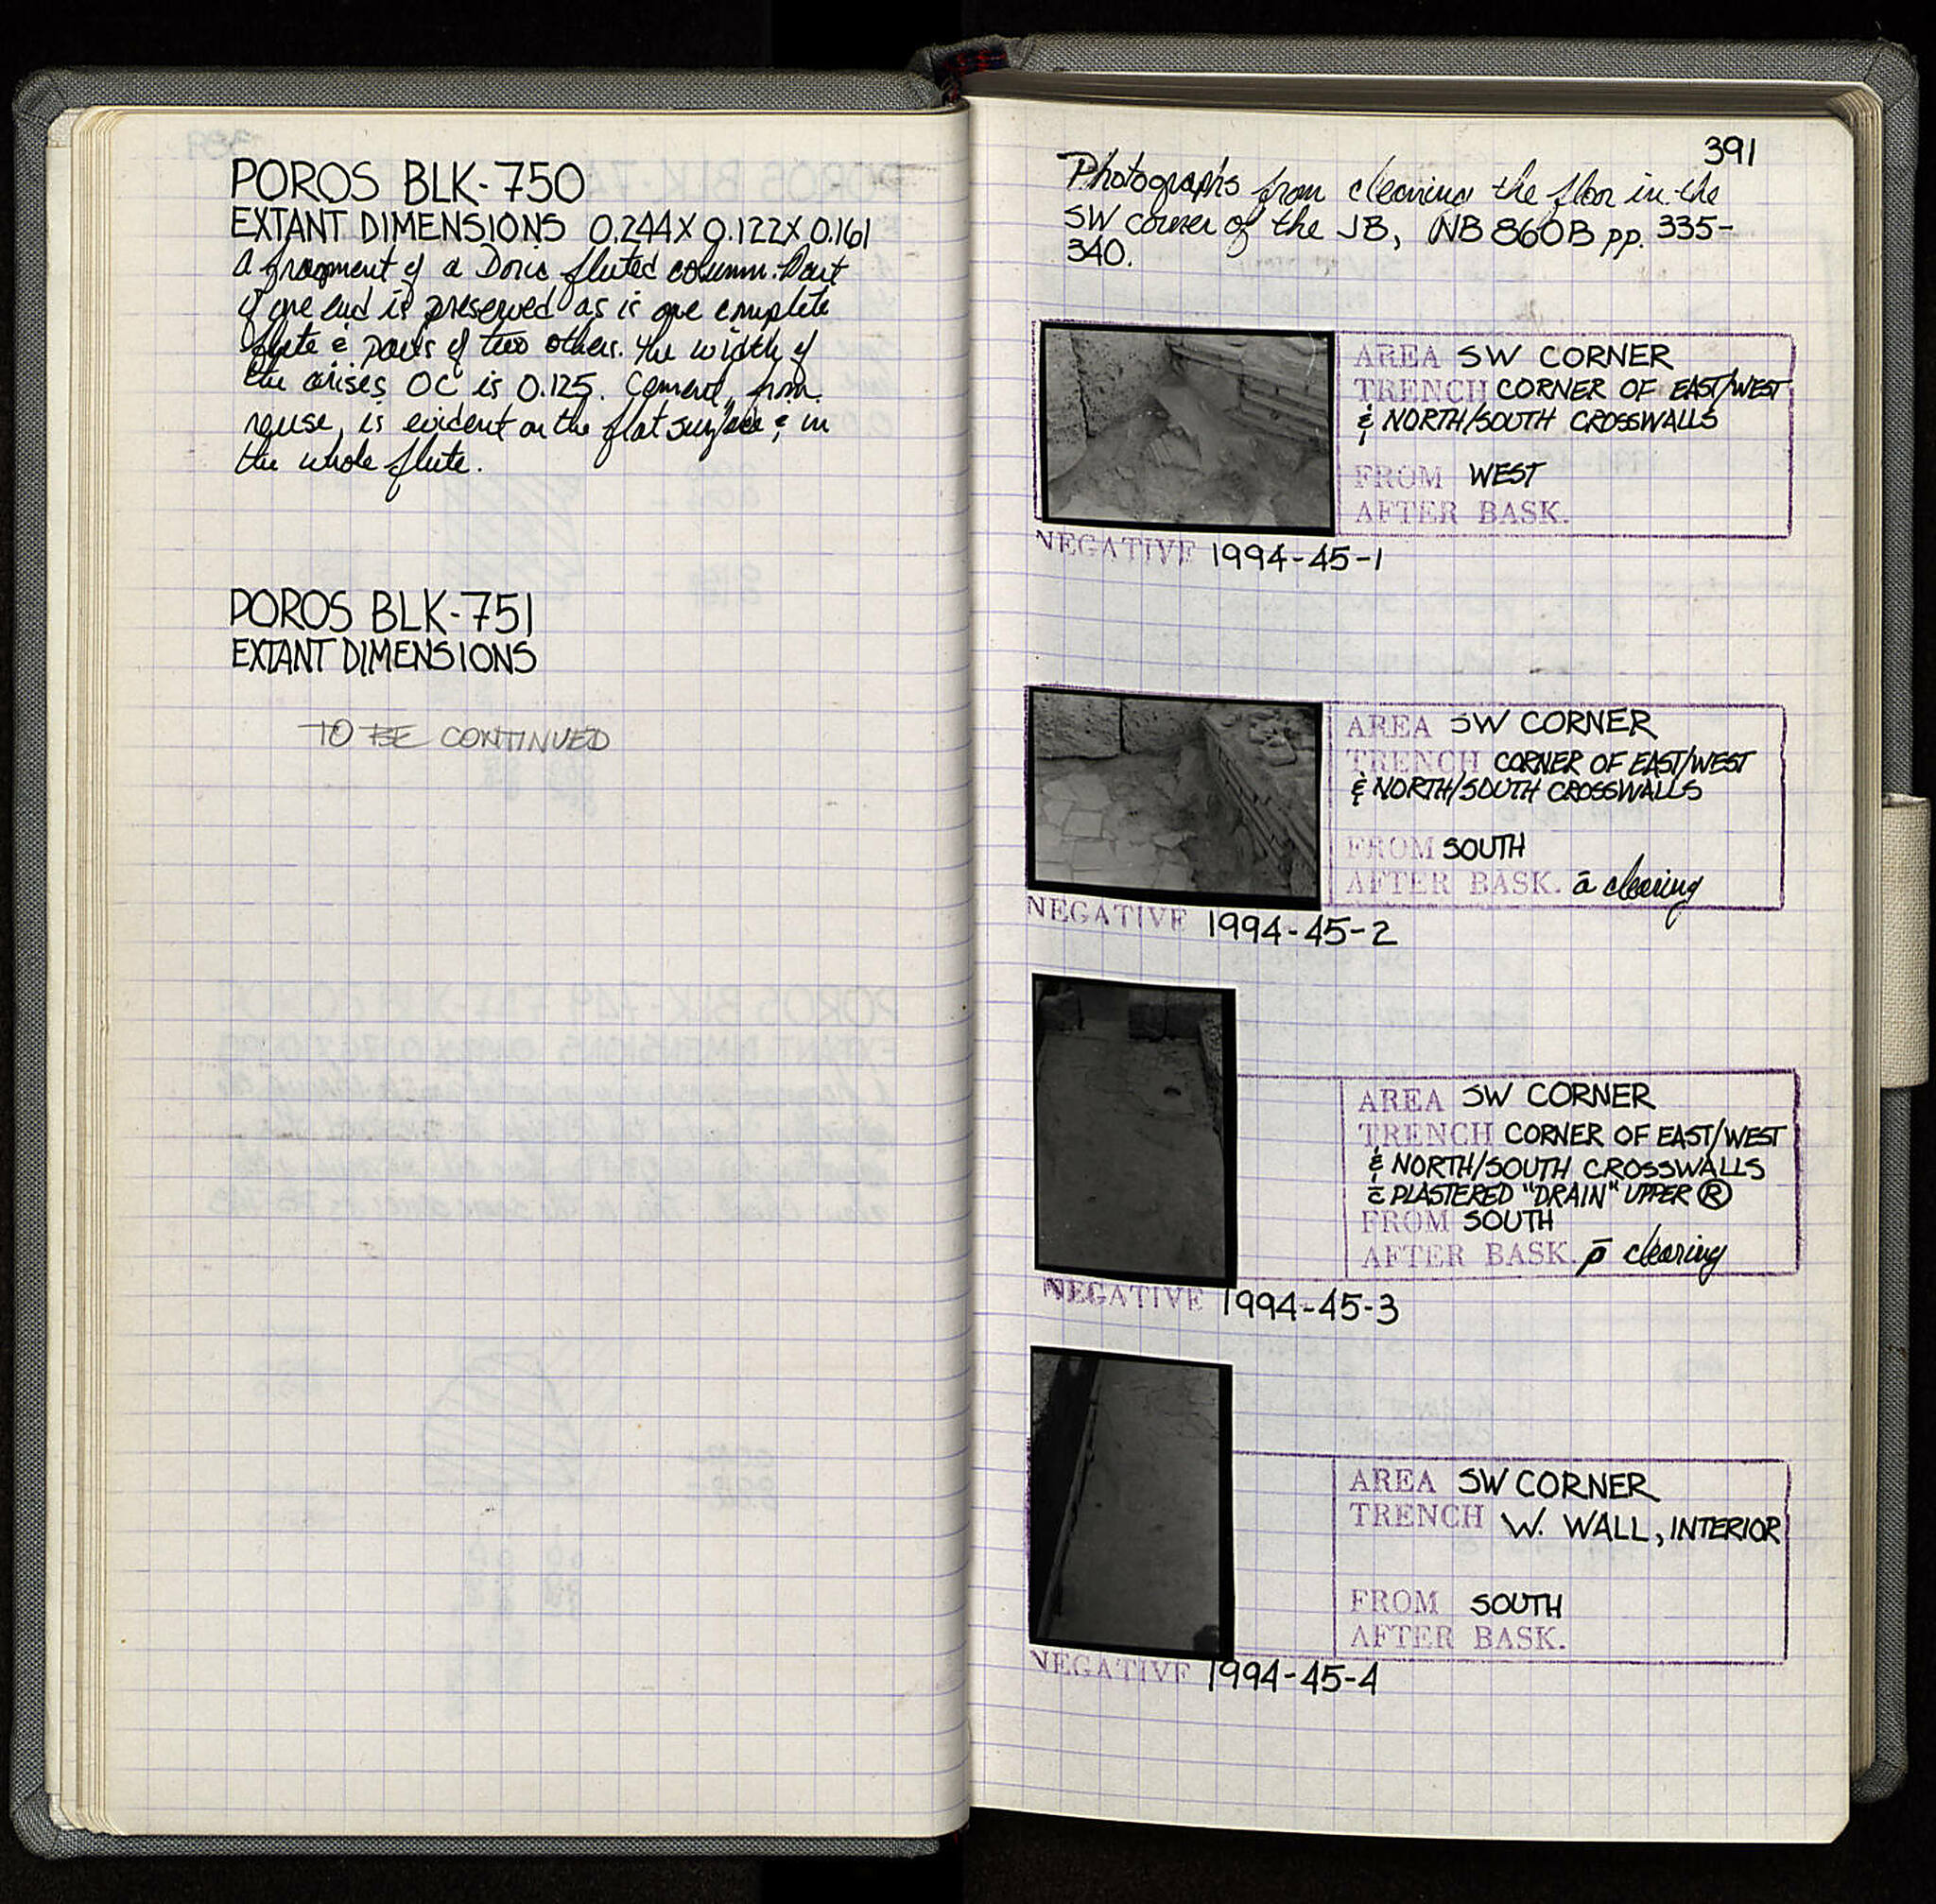 POROS BLK-750
EXTANT DIMENSIONS 0.244X 0.122X 0.161
A fragment of a Doric fluted column. Part
of one end is preserved as is one complete
flute & parts of two others. The width of
the arises OC is 0.125. Cement, from
reuse, is evident on the flat surface & in
the whole flute.
POROS BLK-751
EXTANT DIMENSIONS
TO BE CONTINUED
391
Photographs from cleaning the floor in the
SW corner of the JB, NB 860B pp. 335-
340.
AREA SW CORNER
TRENCH CORNER OF EAST/WEST
& NORTH/SOUTH CROSSWALLS
FROM WEST
AFTER BASK.
NEGATIVE 1994-45-1
AREA SW CORNER
TRENCH CORNER OF EAST/WEST
& NORTH/SOUTH CROSSWALLS
FROM SOUTH
AFTER BASK. ā clearing
NEGATIVE 1994-45-2
AREA SW CORNER
TRENCH CORNER OF EAST/WEST
& NORTH/SOUTH CROSSWALLS
c̄ PLASTERED "DRAIN" UPPER Ⓡ
FROM SOUTH
AFTER BASK. p̄ clearing
NEGATIVE 1994-45-3
AREA SW CORNER
TRENCH W. WALL, INTERIOR
FROM SOUTH
AFTER BASK.
NEGATIVE 1994-45-4